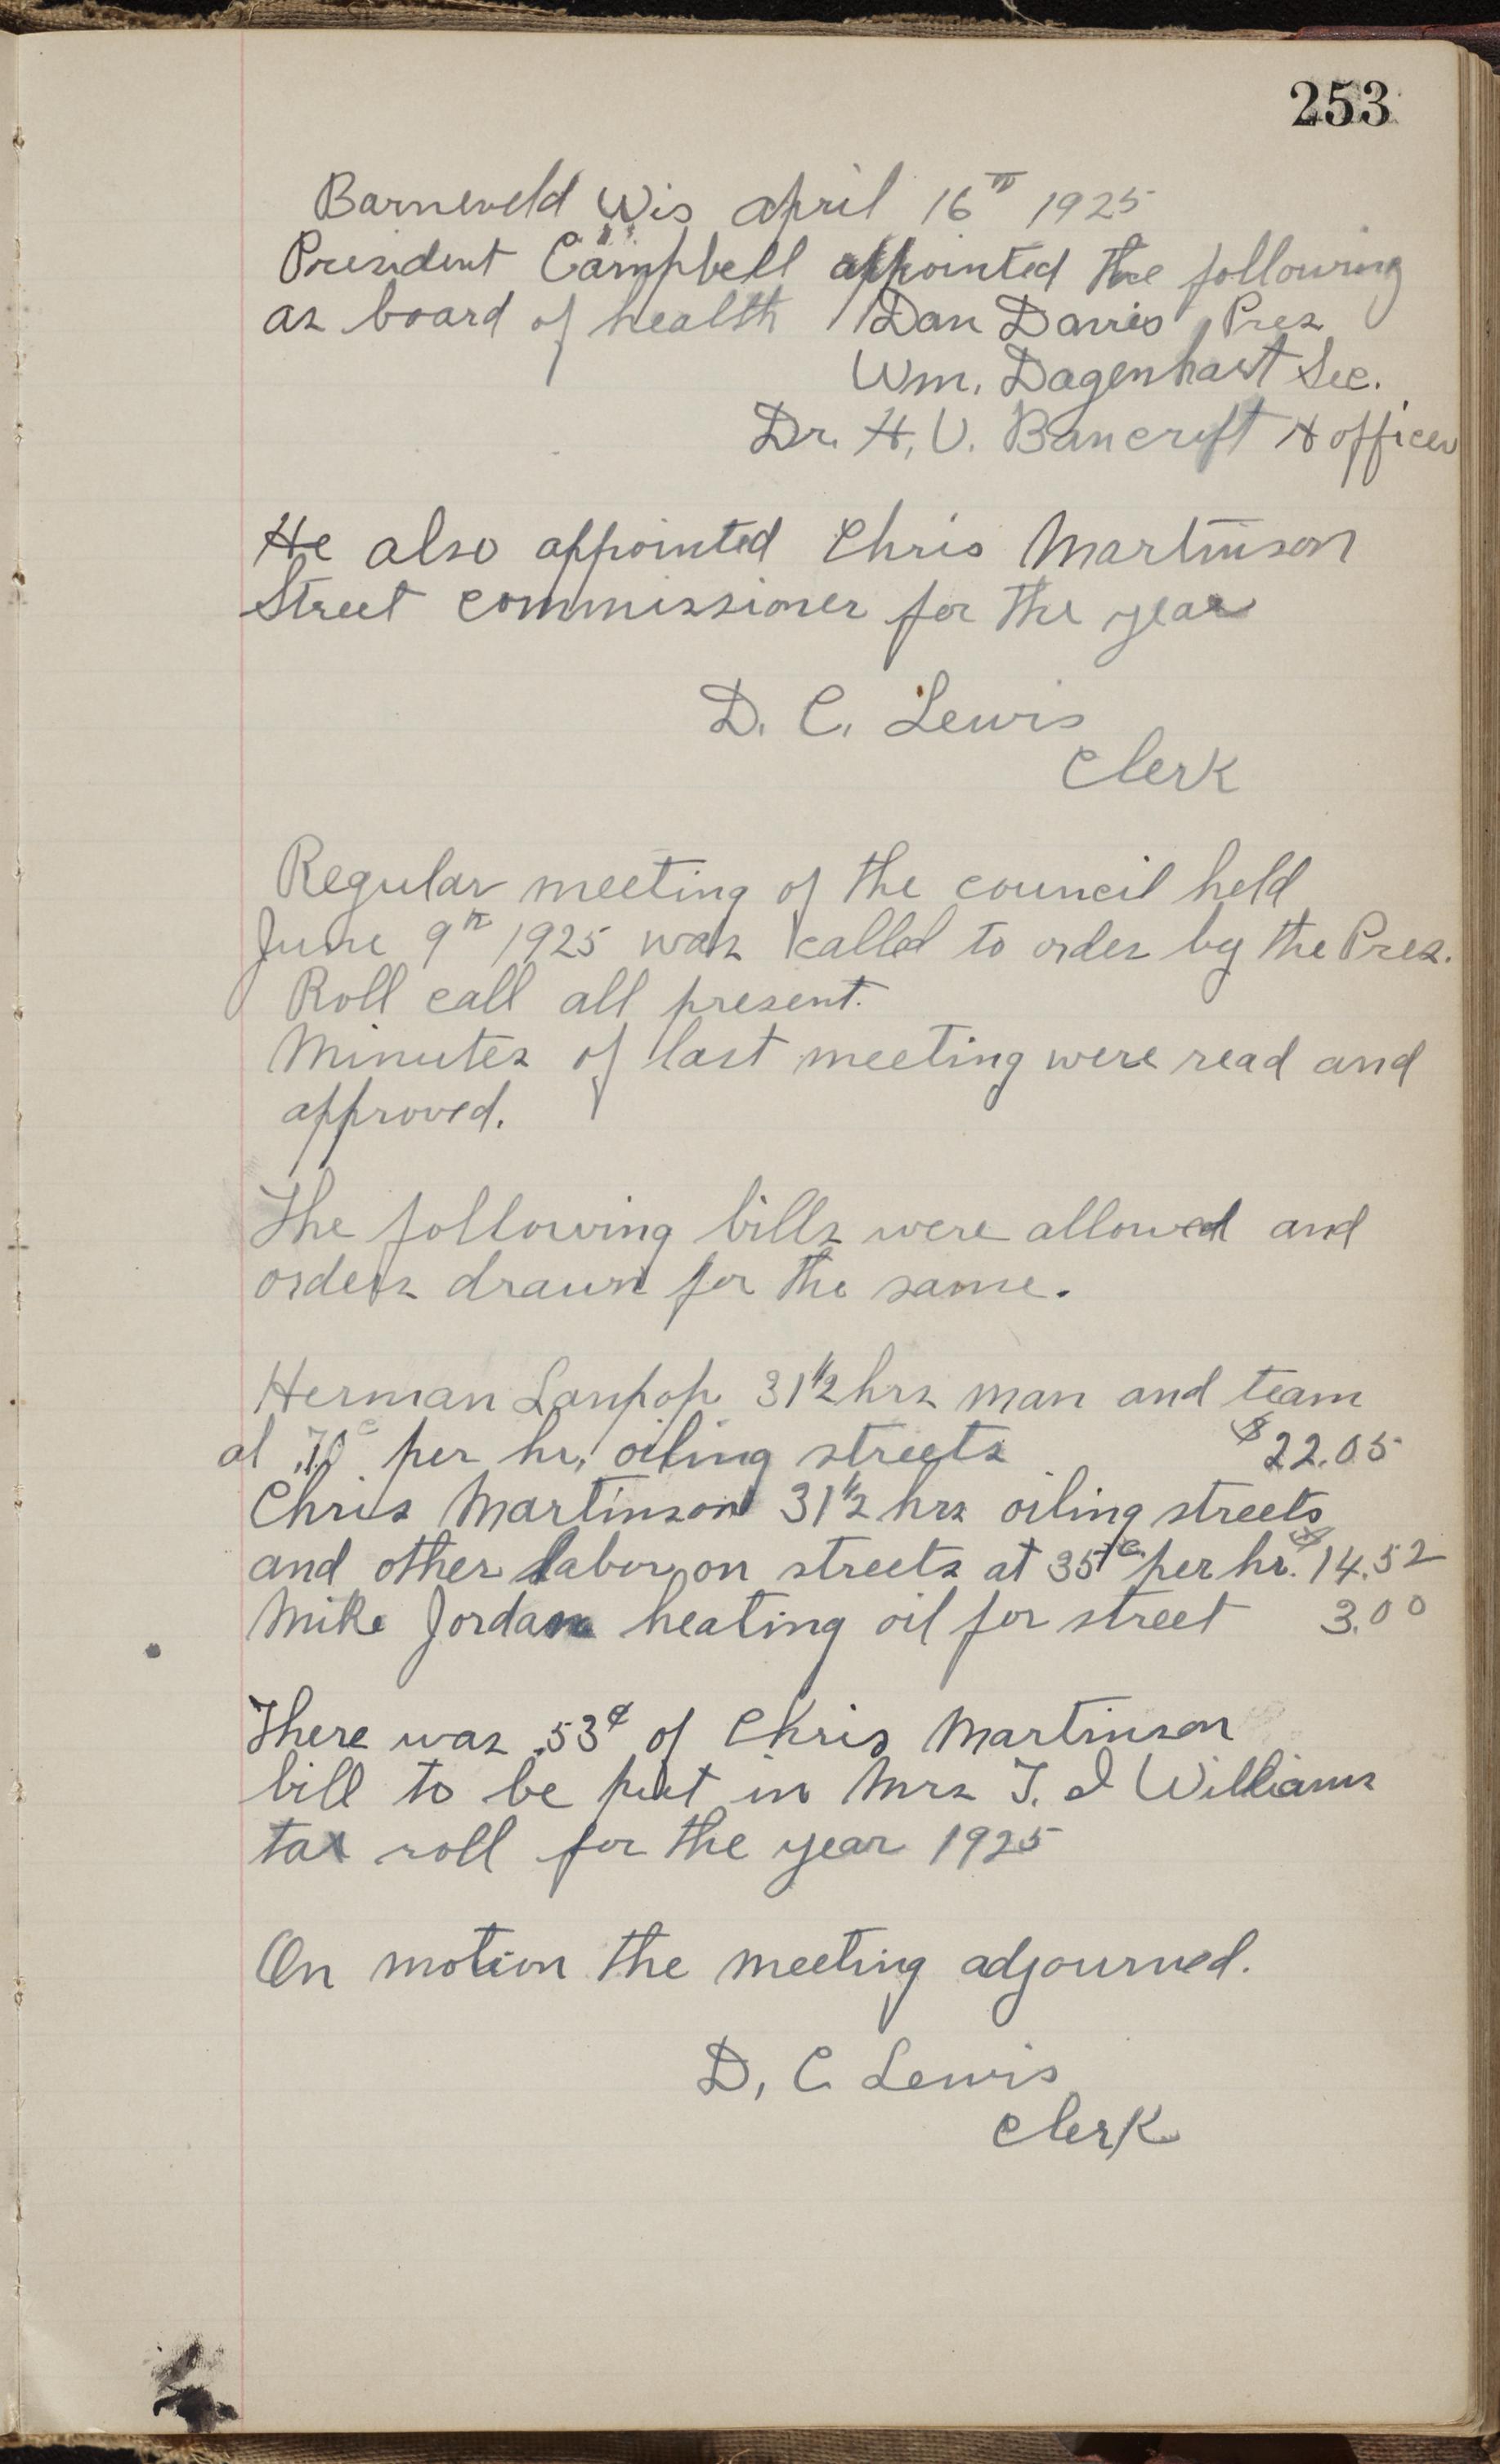 253
Barneveld Wis April 16th 1925
President Campbell appointed the following
as board of health Dan Davis Pres
Wm. Dagenhart Sec.
Dr. H. V. Bancroft H officer
He also appointed Chris Martinson
Street commissioner for the year
D. C. Lewis
Clerk
Regular meeting of the council held
June 9th 1925 was called to order by the Pres.
Roll call all present.
Minutes of last meeting were read and
approved.
The following bills were allowed and
orders drawn for the same.
Herman Lanpop 31 1/2 hrs man and team
at .70c per hr. oiling streets $22.05
Chris Martinson 31 1/2 hrs oiling streets
and other labor on streets at 35c per hr. $14.52
Mike Jordan heating oil for street 3.00
There was .53¢ of Chris Martinson
bill to be put in Mrs T. J Williams
tax roll for the year 1925
On motion the meeting adjourned.
D. C Lewis
Clerk